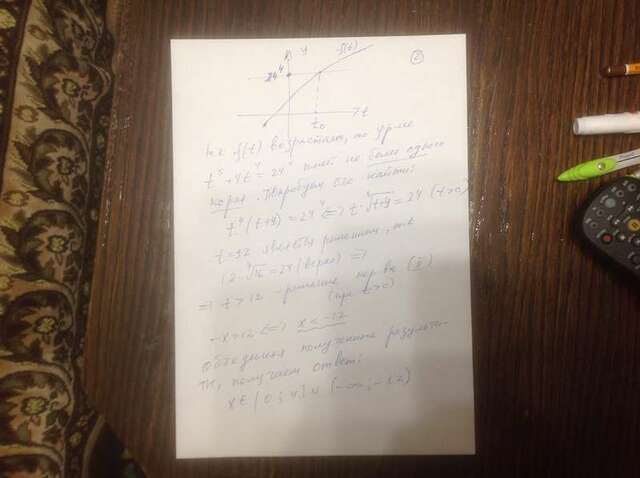 y f(t) ②
24⁴
t₀ t
т.к. f(t) возрастает, то ур-ие
t⁵ + 4t⁴ = 24⁴ имеет не более одного
корня. Попробуем его найти:
t⁴(t+4) = 24⁴ <=> t·⁴√(t+4) = 24 (t>0)
t=12 является решением, т.к
12·⁴√16 = 24 (верно) =>
=> t > 12 - решение нер-ва
(при t>0)
-x > 12 <=> x < -12
Объединяя полученные результа-
ты, получаем ответ:
x ∈ (0; 4] ∪ (-∞; -12)